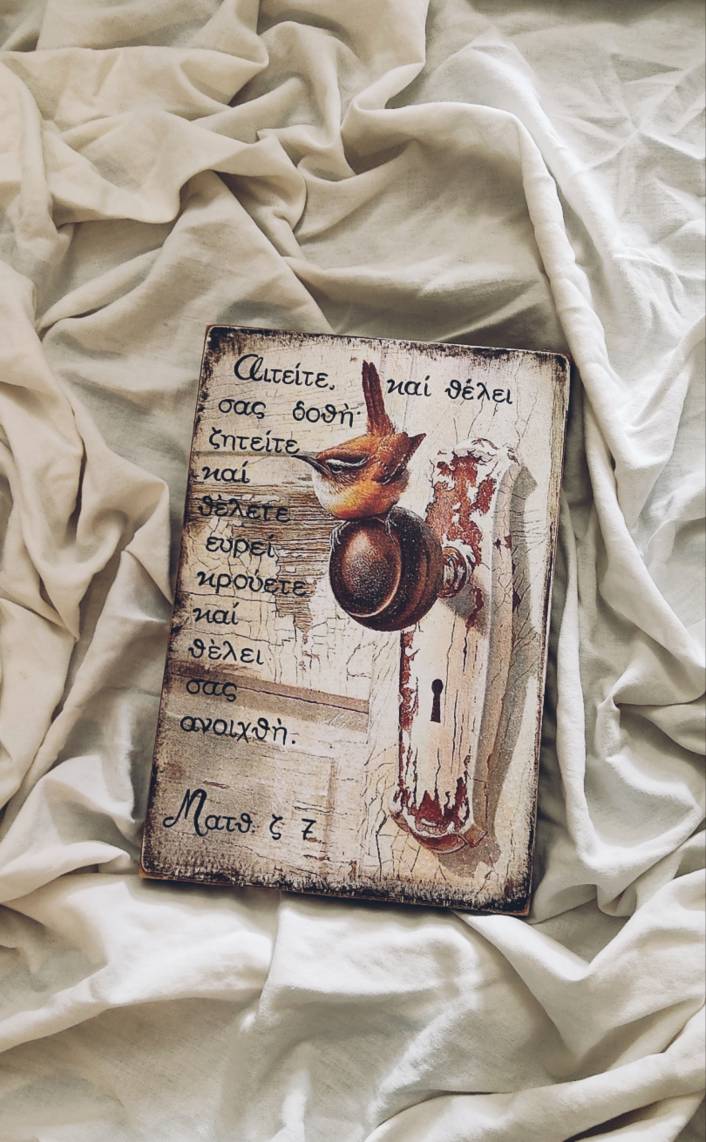 Αιτείτε, και θέλει
σας δοθή·
ζητείτε
καί
θέλετε
ευρεί,
κρούετε
καί
θέλει
σας
ανοιχθή.
Ματθ. ζ 7